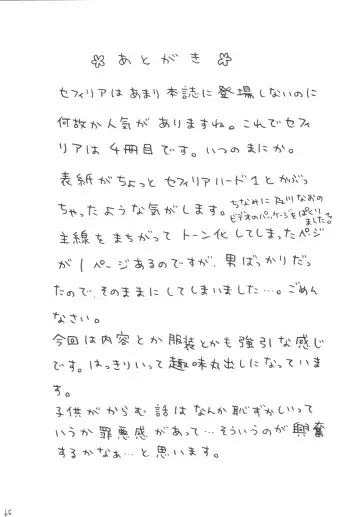 あとがき
セフィリアはあまり本誌に登場しないのに
何故か人気がありますね。これでセフィ
リアは4冊目です。いつのまにか。
表紙がちょっとセフィリアハード1とかぶっ
ちゃったような気がします。
ちなみに及川なおの
ビデオのパッケージをぱくり
ました。
主線をまちがってトーン化してしまったページ
が1ページあるのですが、男ばっかりだっ
たので、そのままにしてしまいました…。ごめん
なさい。
今回は内容とか服装とかも強引な感じ
です。はっきりいって趣味丸出しになっていま
す。